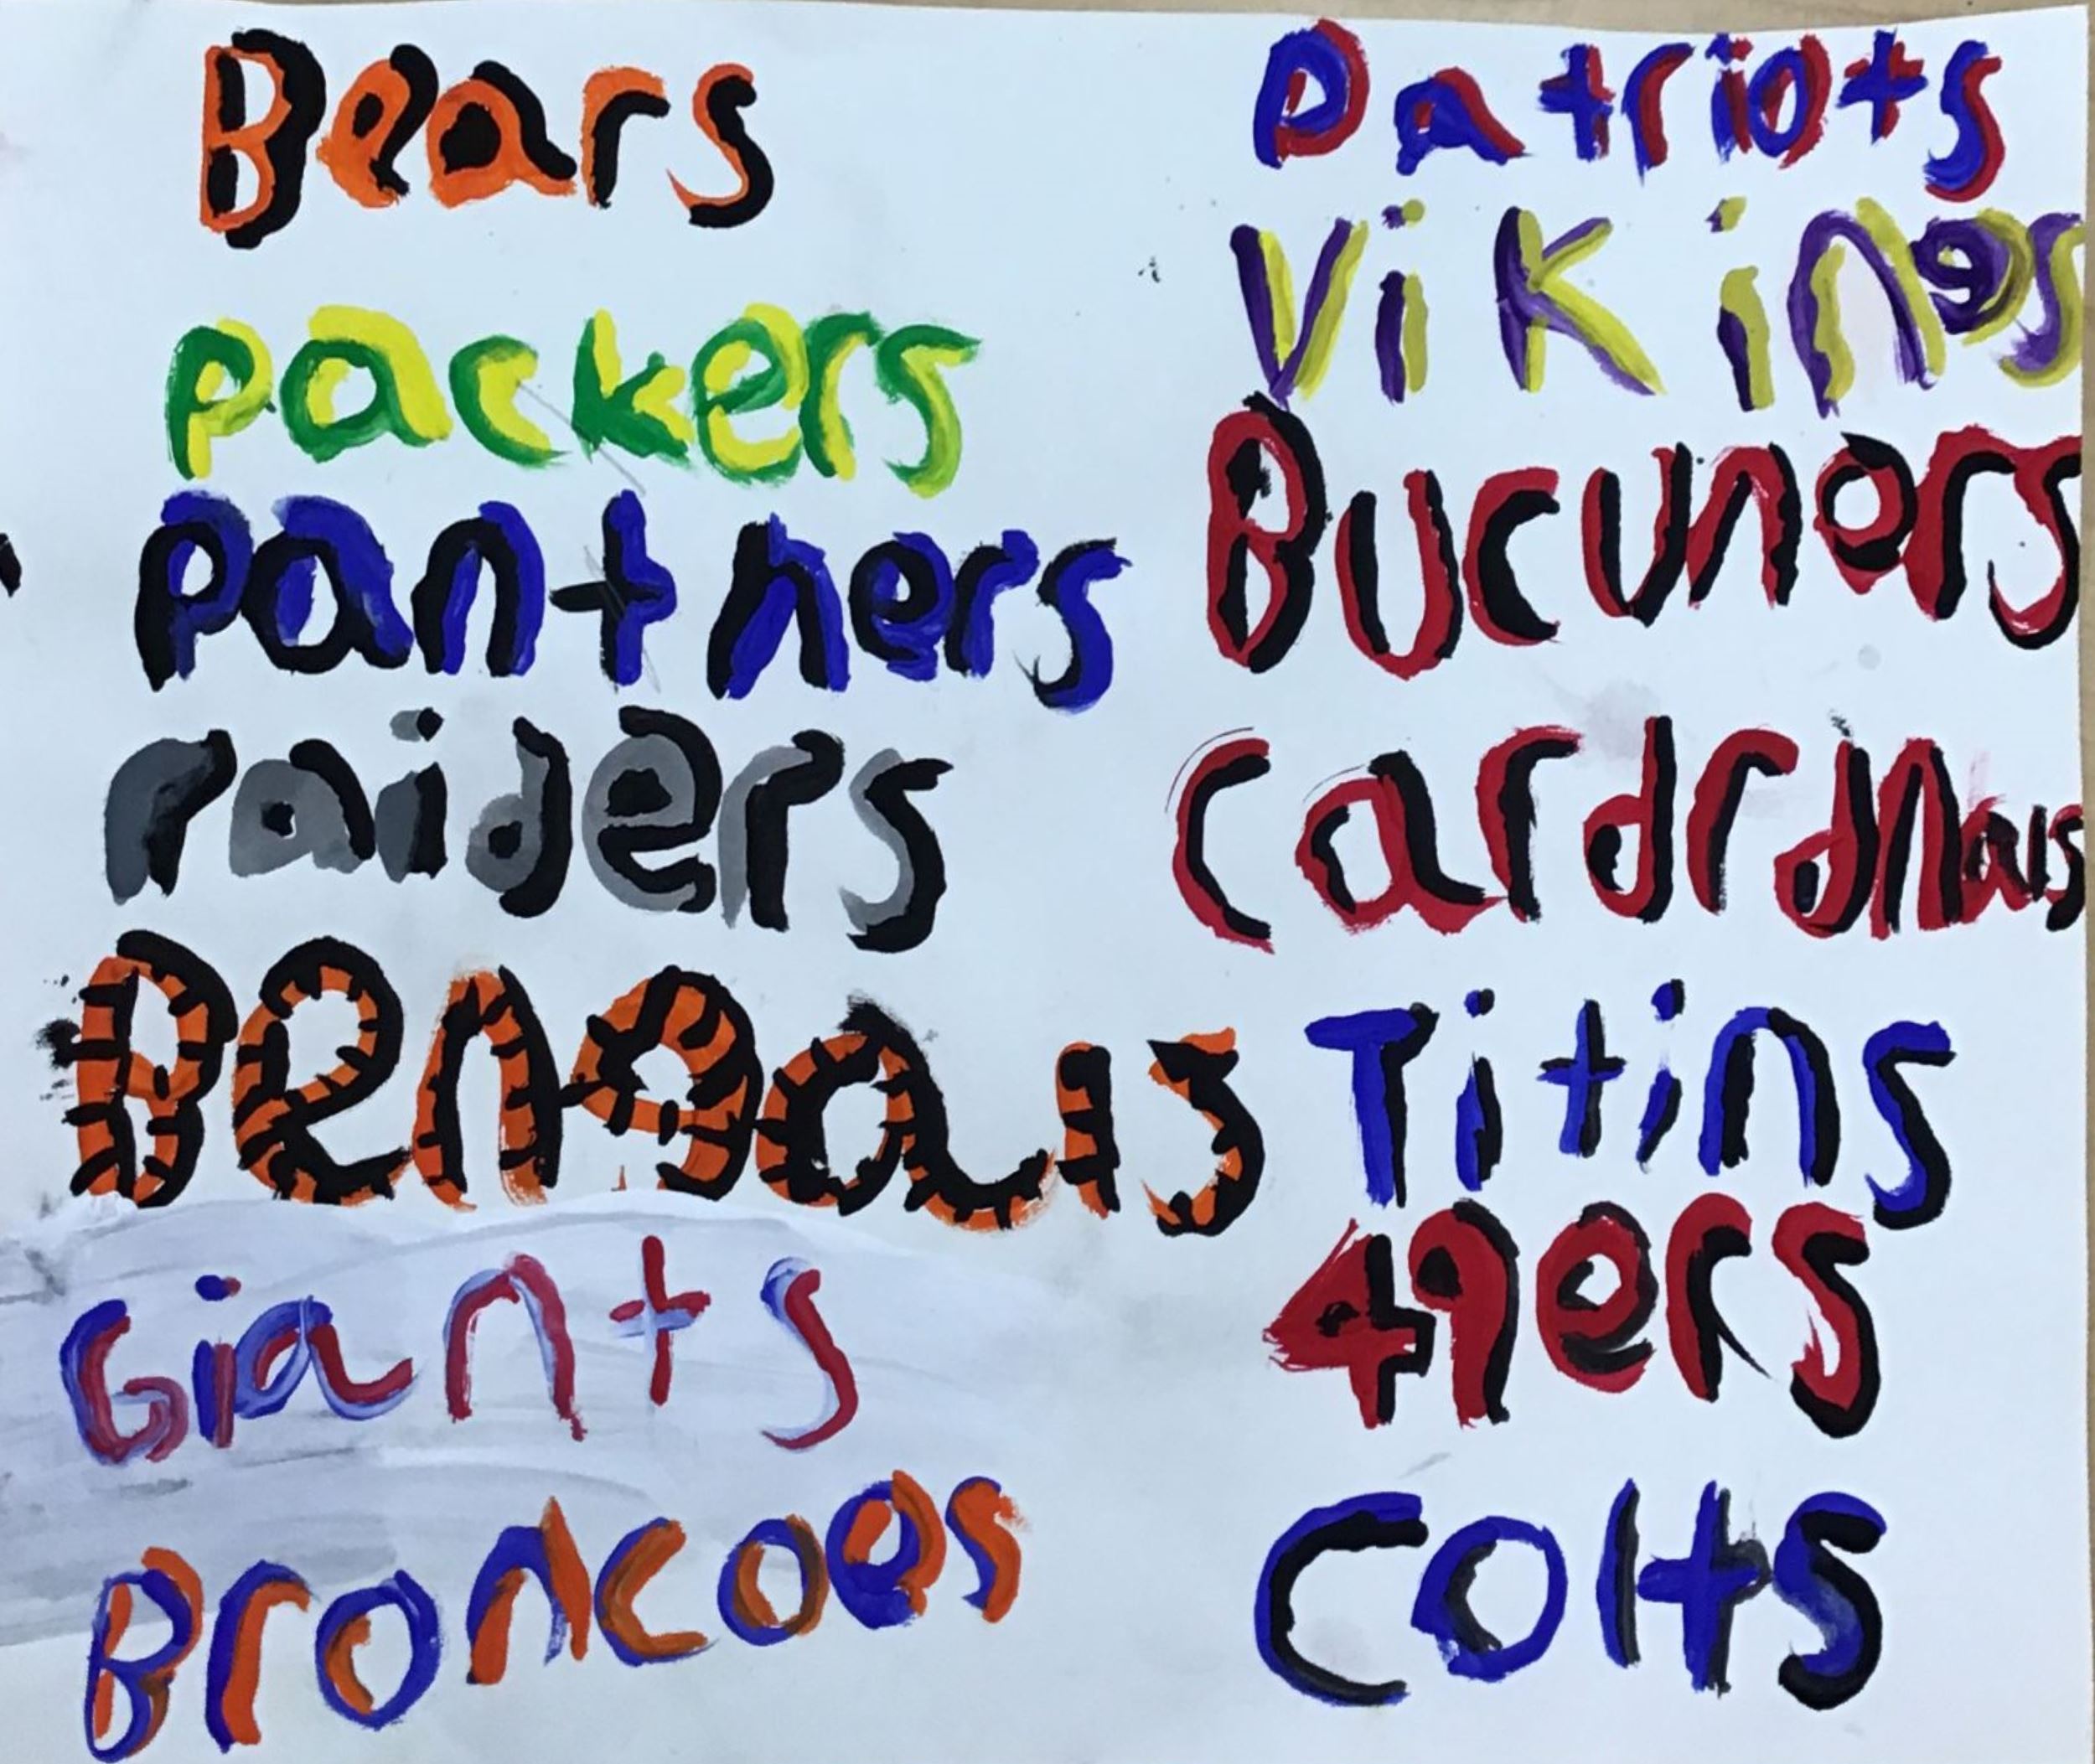 Bears
packers
panthers
raiders
Bengauls
Giants
Broncoes
Patriots
Vikings
Bucuners
Cardrdnals
Titins
49ers
Colts